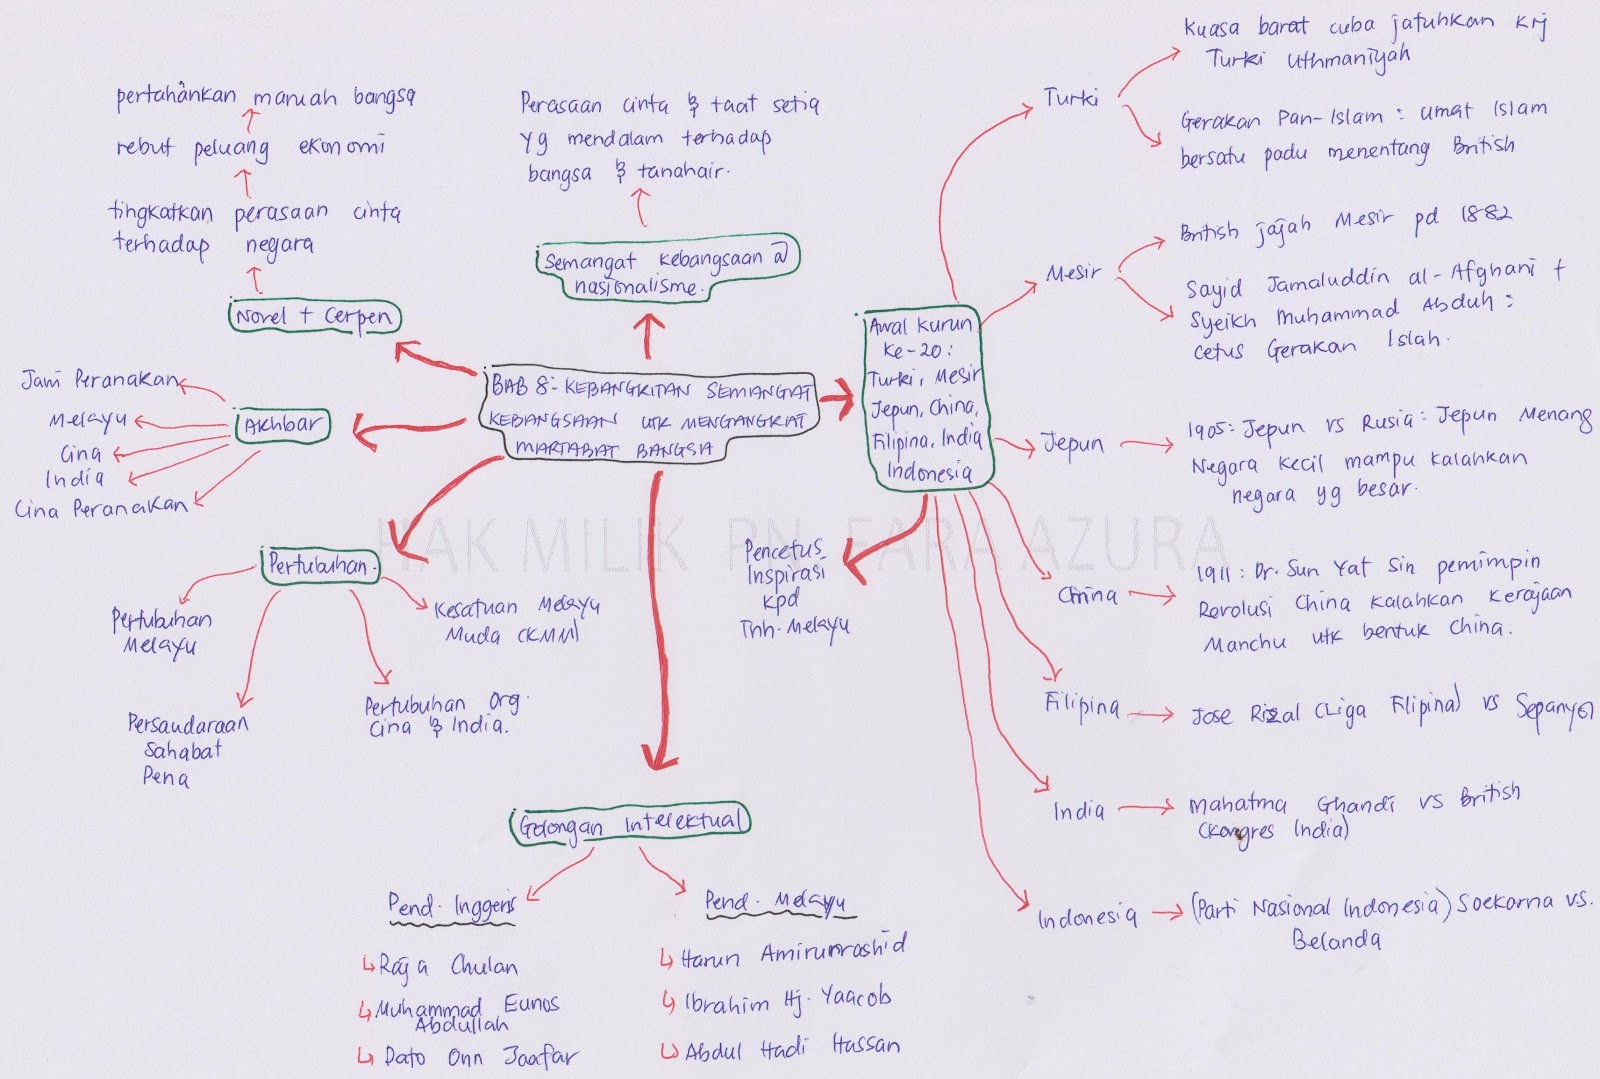 Kuasa barat cuba jatuhkan krj
Turki Uthmaniyah
Turki
Gerakan Pan-Islam : umat Islam
bersatu padu menentang British
pertahankan maruah bangsa
rebut peluang ekonomi
tingkatkan perasaan cinta
terhadap negara
Novel + Cerpen
Perasaan cinta & taat setia
yg mendalam terhadap
bangsa & tanahair.
Semangat kebangsaan @
nasionalisme.
British jajah Mesir pd 1882
Mesir
Sayid Jamaluddin al-Afghani +
Syeikh Muhammad Abduh :
cetus Gerakan Islah.
Awal Kurun
ke-20 :
Turki, Mesir
Jepun, China,
Filipina, India
Indonesia
BAB 8:- KEBANGKITAN SEMANGAT
KEBANGSAAN UTK MENGANGKAT
MARTABAT BANGSA
Jawi Peranakan
Melayu
Cina
India
Cina Peranakan
Akhbar
Jepun
1905: Jepun vs Rusia : Jepun Menang
Negara kecil mampu kalahkan
negara yg besar.
HAK MILIK PN. FARA AZURA
Pencetus
Inspirasi
kpd
Tnh. Melayu
Pertubuhan.
Pertubuhan
Melayu
Persaudaraan
Sahabat
Pena
Pertubuhan org.
Cina & India.
Kesatuan Melayu
Muda (KMM)
China
1911 : Dr. Sun Yat Sin pemimpin
Revolusi China kalahkan Kerajaan
Manchu utk bentuk China.
Filipina
Jose Rizal (Liga Filipina) vs Sepanyol
India
Mahatma Ghandi vs British
(Kongres India)
Indonesia
(Parti Nasional Indonesia) Soekarna vs.
Belanda
Golongan Intelektual
Pend. Inggeris
Raja Chulan
Muhammad Eunos
Abdullah
Dato Onn Jaafar
Pend. Melayu
Harun Amirurrashid
Ibrahim Hj. Yaacob
Abdul Hadi Hassan